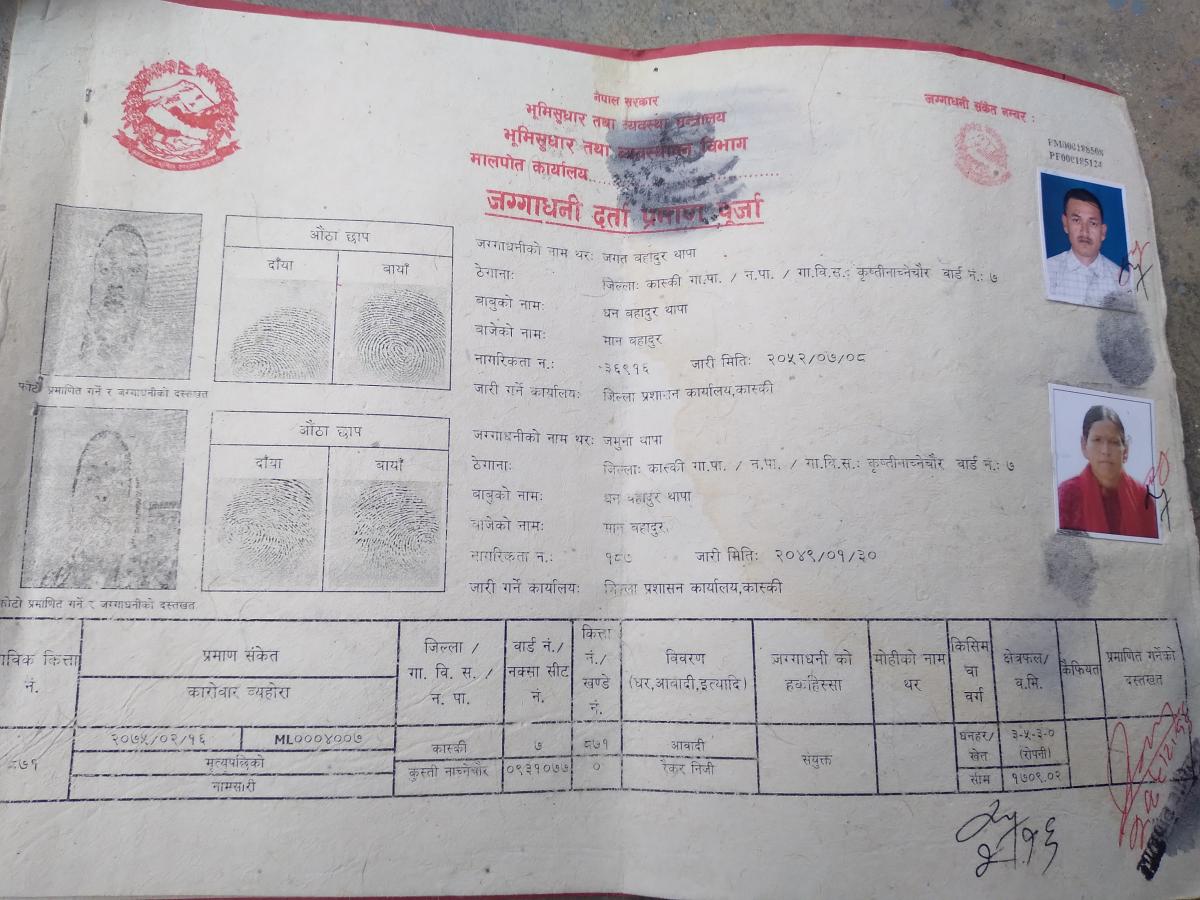 नेपाल सरकार
भूमिसुधार तथा व्यवस्था मन्त्रालय
भूमिसुधार तथा व्यवस्थापन विभाग
मालपोत कार्यालय
जग्गाधनी दर्ता प्रमाण पूर्जा
जग्गाधनी संकेत नम्बर :
औंठा छाप
दाँया बायाँ
फोटो प्रमाणित गर्ने र जग्गाधनीको दस्तखत
जग्गाधनीको नाम थर: जगत बहादुर थापा
ठेगाना: जिल्ला: कास्की गा.पा. / न.पा. / गा.वि.स.: कृष्तीनाच्नेचौर वार्ड नं.: ७
बाबुको नाम: धन बहादुर थापा
बाजेको नाम: मान बहादुर
नागरिकता न.: ३६९१६ जारी मिति: २०५२/०७/०८
जारी गर्ने कार्यालय: जिल्ला प्रशासन कार्यालय,कास्की
औंठा छाप
दाँया बायाँ
फोटो प्रमाणित गर्ने र जग्गाधनीको दस्तखत
जग्गाधनीको नाम थर: जमुना थापा
ठेगाना: जिल्ला: कास्की गा.पा. / न.पा. / गा.वि.स.: कृष्तीनाच्नेचौर वार्ड नं.: ७
बाबुको नाम: धन बहादुर थापा
बाजेको नाम: मान बहादुर
नागरिकता न.: १८७ जारी मिति: २०४९/०१/३०
जारी गर्ने कार्यालय: जिल्ला प्रशासन कार्यालय,कास्की
साविक कित्ता नं.
प्रमाण संकेत
कारोवार व्यहोरा
जिल्ला / गा. वि. स. / न. पा.
वार्ड नं./ नक्सा सीट नं.
कित्ता नं./ खण्डे नं.
विवरण (घर,आवादी,इत्यादि)
जग्गाधनी को हकहिस्सा
मोहीको नाम थर
किसिम वा वर्ग
क्षेत्रफल/ व.मि.
कैफियत
प्रमाणित गर्नेको दस्तखत
८७१ २०७५/०२/१६ ML0004007 कास्की ७ ८७१ आवादी संयुक्त धनहर/खेत ३-५-३-० (रोपनी)
मृत्यूपछिको नामसारी कृस्ती नाच्नेचौर ०९३१०७७ ० रैकर निजी सीम १७०९.०२